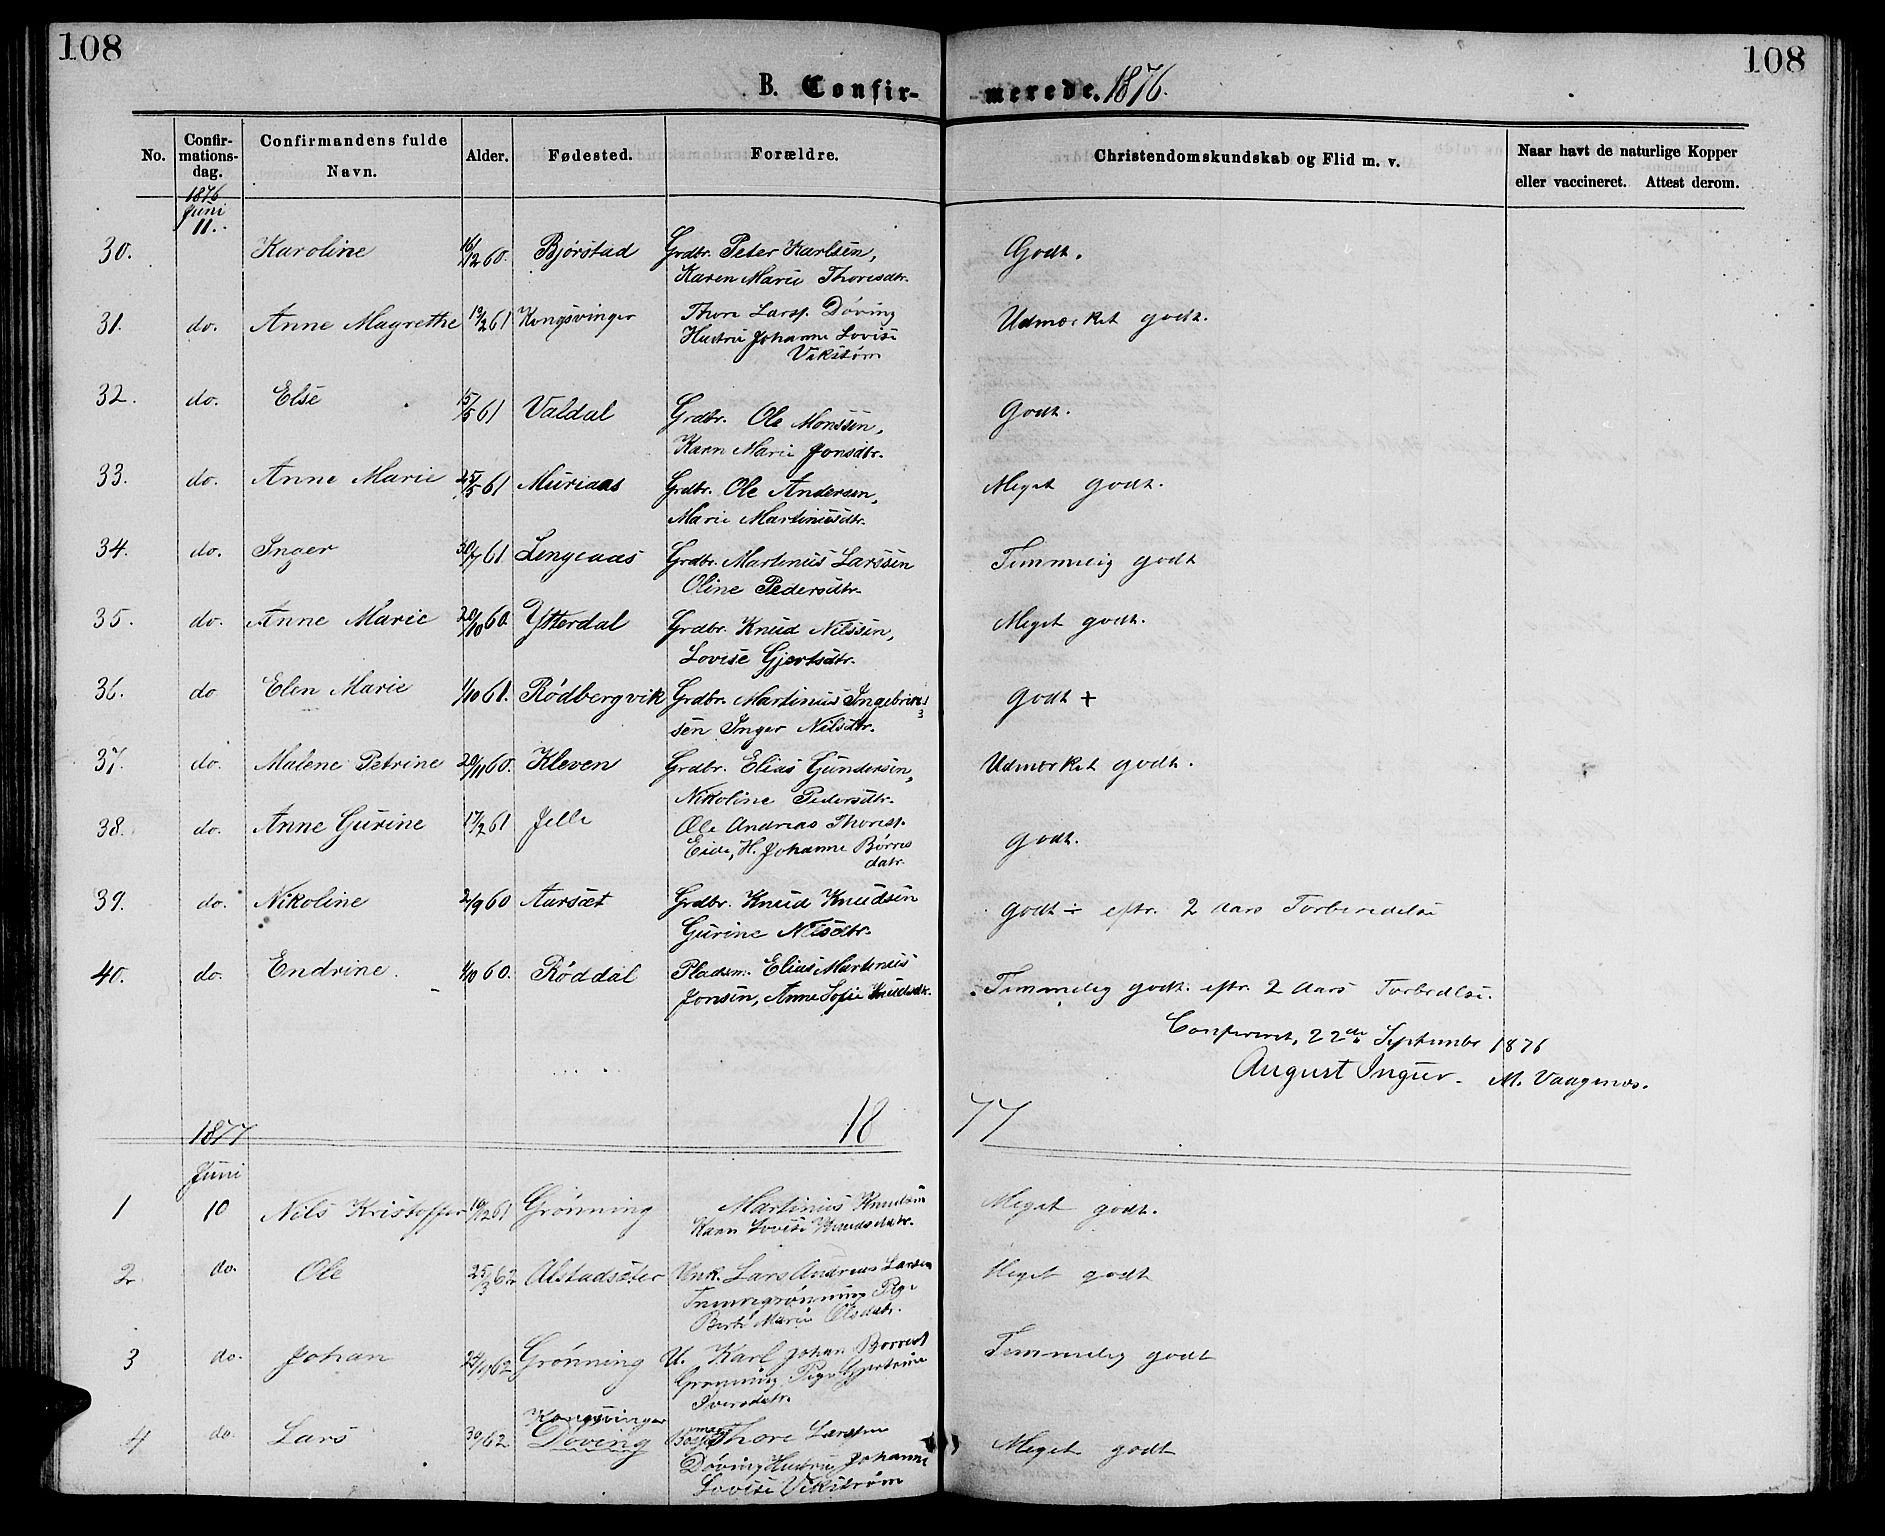 108
108
B. Confir- merede. 1876.
No.
Confir-
mations-
dag.
Confirmandens fulde
Navn.
Alder.
Fødested.
Forældre.
Christendomskundskab og Flid m. v.
Naar havt de naturlige Kopper
eller vaccineret. Attest derom.
1876
Juni
11.
30. Karoline 16/12 60. Bjørstad Grdbr. Peter Karlsen, Godt.
Karen Marie Thoresdtr.
31. do. Anne Magrethe 19/2 61 Kongsvinger Thore Larss. Døving Udmærket godt.
Hustru Johanne Lovise
Vikstøm
32. do. Else 15/5 61 Valdal Grdbr. Ole Monssen, Godt.
Karen Marie Jonsdtr.
33. do. Anne Marie 25/5 61 Muriaas Grdbr. Ole Andersen, Meget godt.
Marie Martinusdtr.
34. do. Inger 30/7 61 Lengeaas Grdbr. Martinus Larssen Temmelig godt
Oline Pedersdtr.
35. do. Anne Marie 20/10 60. Ytterdal Grdbr. Knud Nilssen, Meget godt.
Lovise Gjertsdtr.
36. do Elen Marie 1/10 61. Rødbergvik Grdbr. Martinus Ingebrigt= godt +
sen Inger Nilsdtr.
37. do. Malene Petrine 20/11 60. Kleven Grdbr. Elias Gundersen, Udmærket godt.
Nikoline Pedersdtr.
38. do. Anne Gurine 17/2 61 Jelle Ole Andreas Thores. godt.
Eide, H. Johanne Børres
datr.
39. do. Nikoline 2/9 60 Aarsæt Grdbr. Knud Knudsen godt ÷ eftr. 2 aars Forberedelse
Gurine Nilsdtr.
40. do. Endrine. 4/10 60. Røddal Pladsm. Elias Martinus Temmelig godt. eftr. 2 Aars Forbredlse.
Jonsen, Anne Sofie Knudsdtr.
Confereret, 22de September 1876
August Inguv. M. Vaagenæs.
18 77
1877
Juni
1 10 Nils Kristoffer 10/12 61 Grønning Martinus Knudsen Meget godt.
Karen Lovise Knudsdatr.
2 do. Ole 25/3 62 Alstadsæter Unk. Lars Andreas Larsen Meget godt
Indregrønning Pige
Berte Marie Olsdatr.
3 do. Johan 24/10 62 Grønning U. Karl Johan Borres. Temmelig godt
Grønning, Pige Gjertrine
Iversdatr.
4 do. Lars 30/ 62 Kongsvinger
Døving Thore Larssen Meget godt
Døving Hustru Johanne
Lovise Vikstrøm